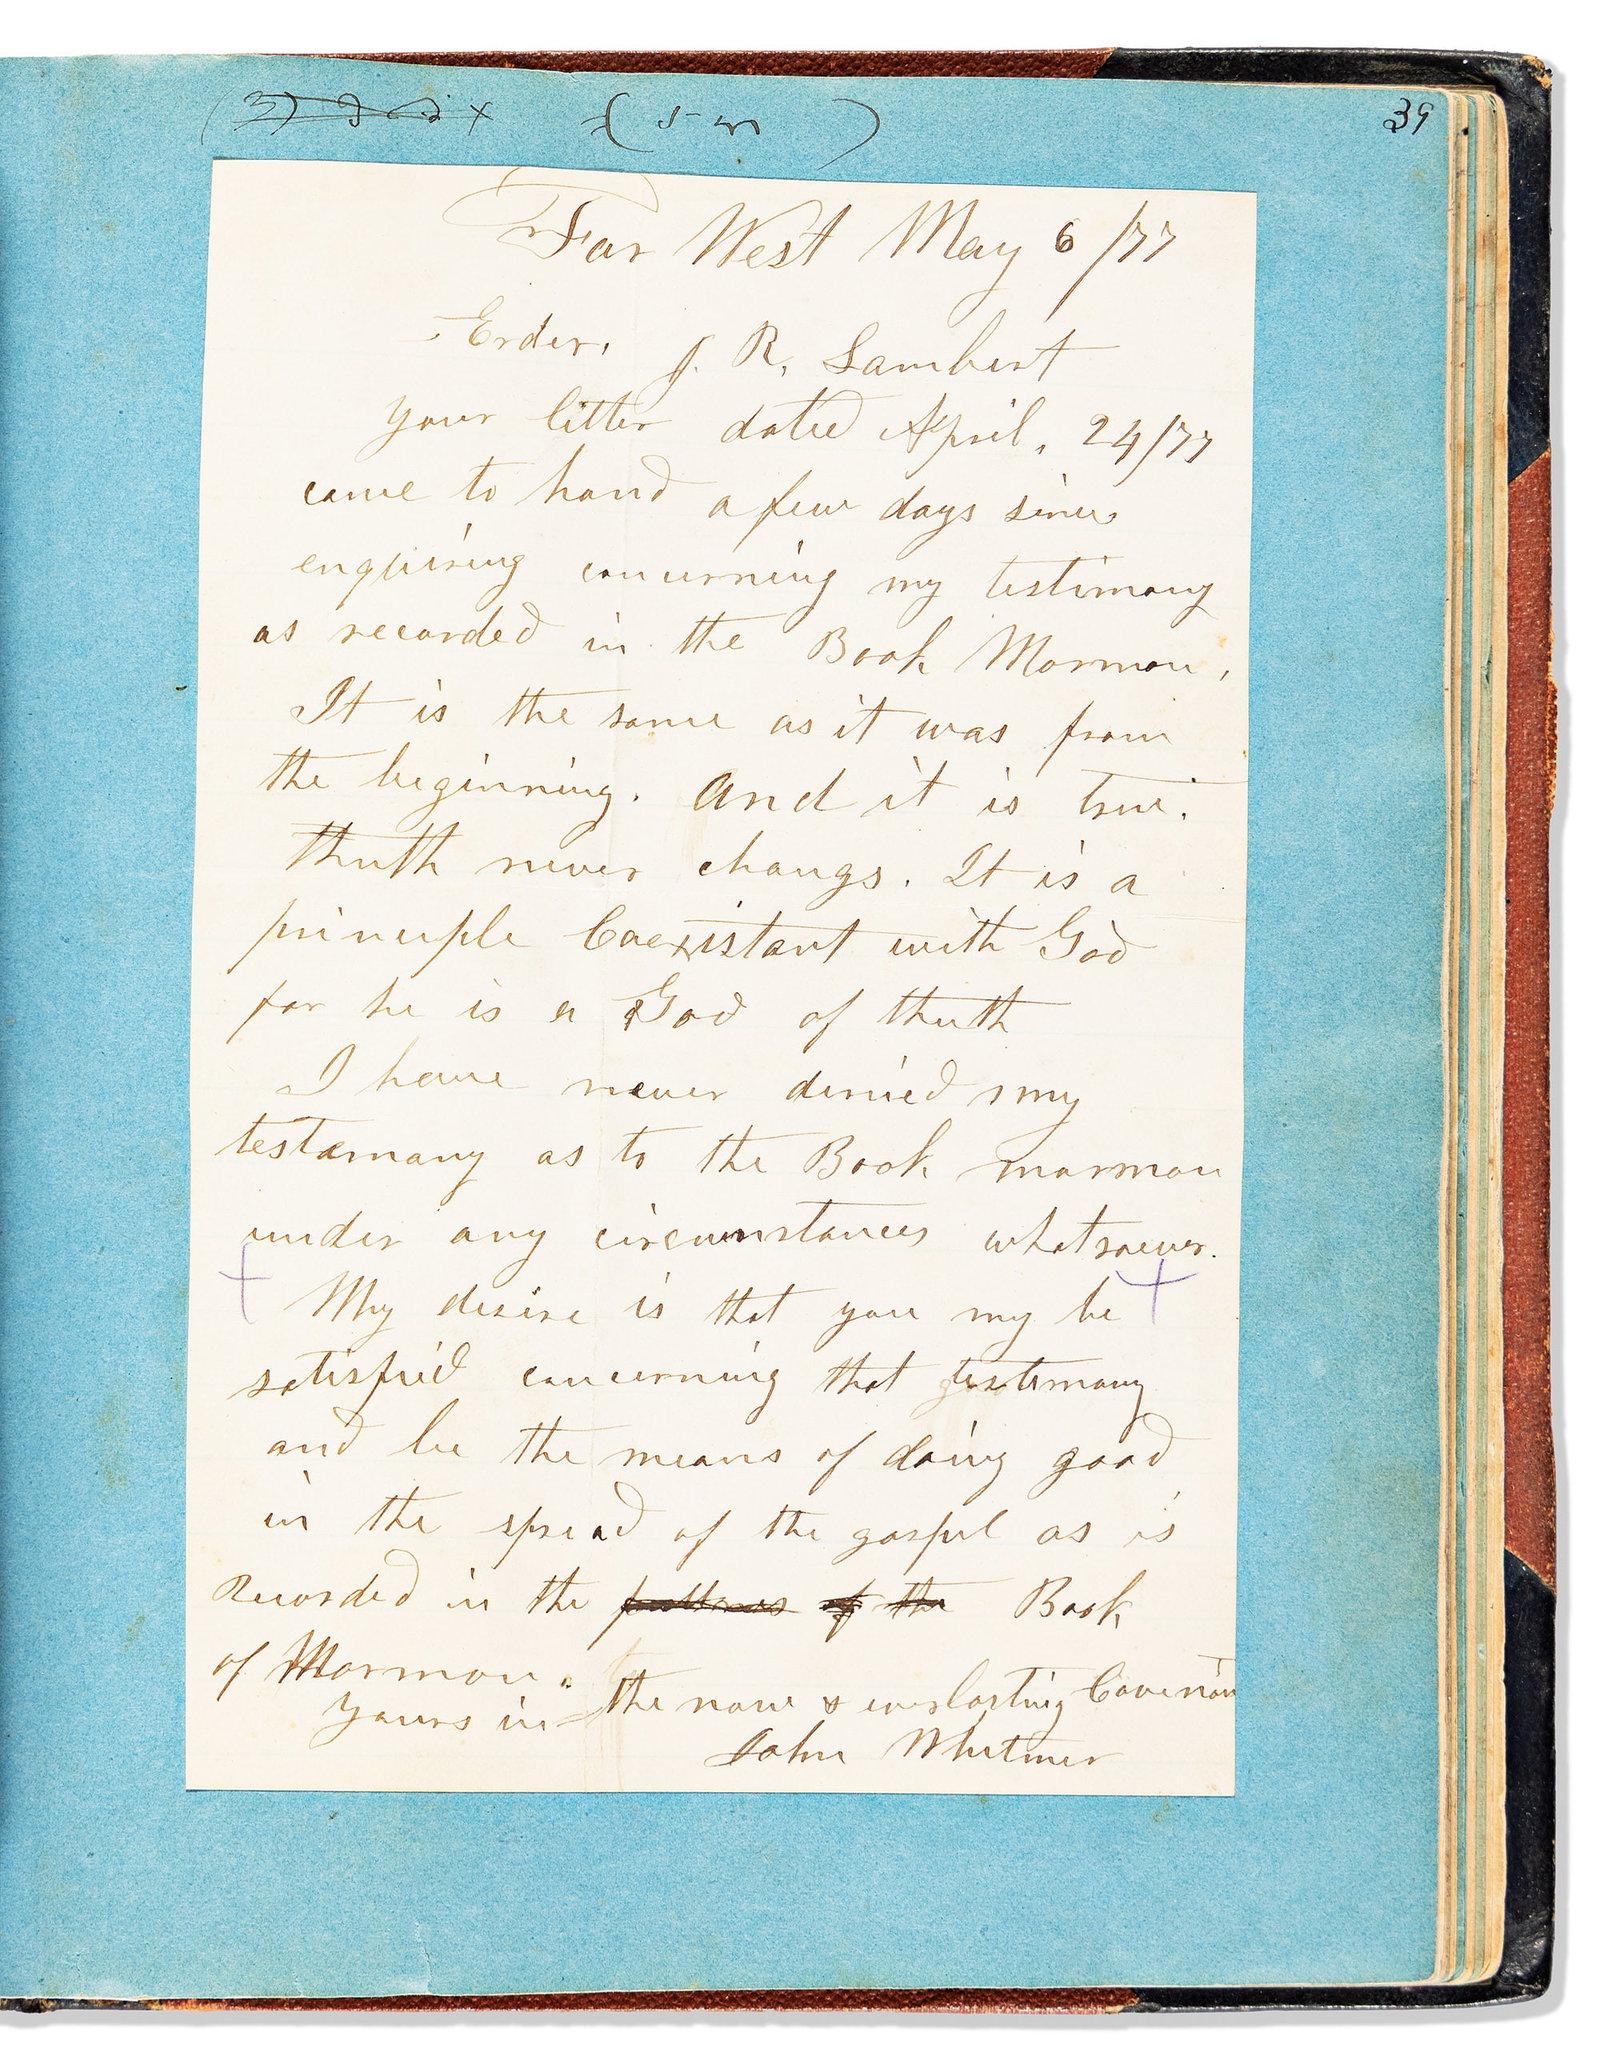 39
Far West May 6/77
Erder, J. R. Lambert
your litter dated April, 24/77
came to hand a few days since
enquiring concerning my testimony
as recorded in the Book Mormon,
It is the same as it was from
the beginning. And it is true.
thruth never changs. It is a
principle Coexistant with God
for he is a God of thruth
I have never denied my
testimony as to the Book mormon
under any circumstances whatsoever.
My desire is that you my be
satisfied concerning that testimony
and be the means of doing good
in the spread of the gospel as is
Recorded in the of the Book
of Mormon.
Yours in the now & everlasting Covenan
John Whitmer